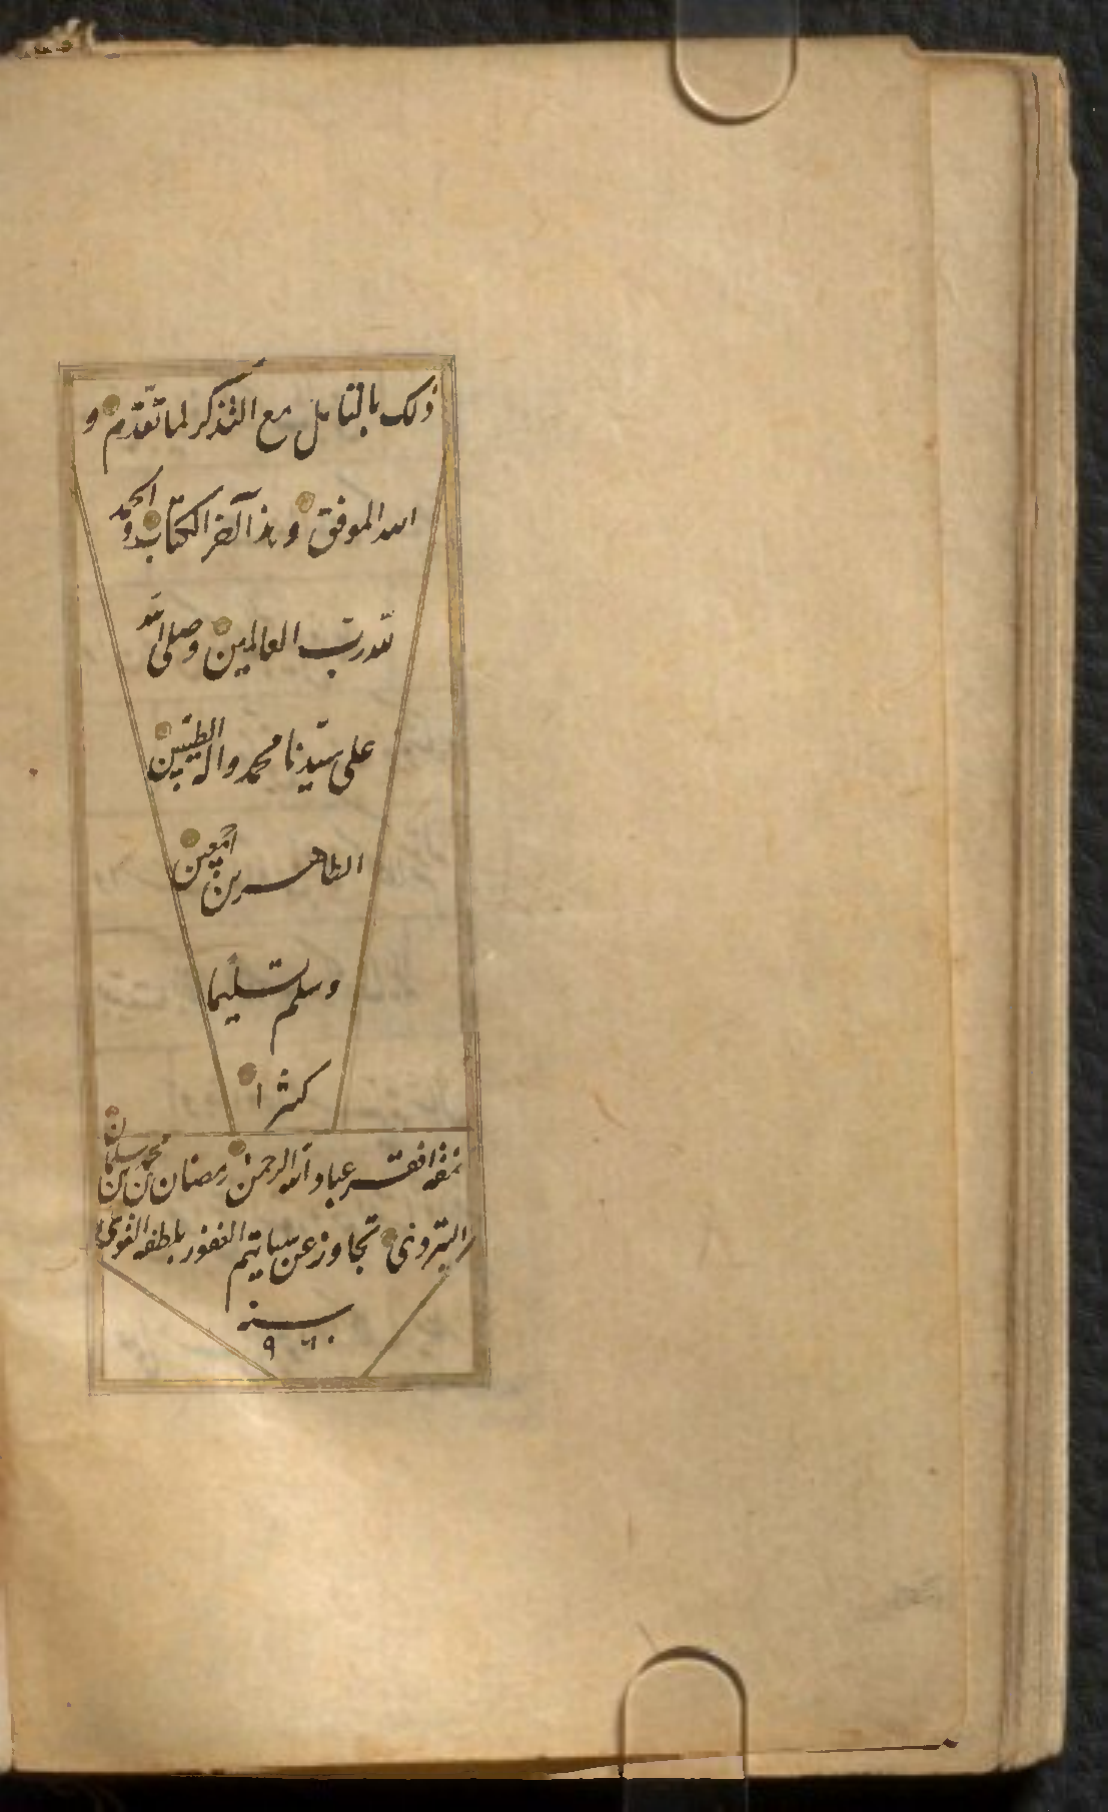 ذلك بالتامل مع التذكر لما تقدم و
الله الموفق وهذا آخر الكتاب والحمد
لله رب العالمين وصلى الله
على سيدنا محمد واله الطيبين
الطاهرين اجمعين
وسلم تسليما
كثيرا
نمقه افقر عباد الله الرحمن رمضان بن محمد بن سلمان
تجاوز عن سياتهم الغفور بلطفه القوى
بسنة
٩٦٠